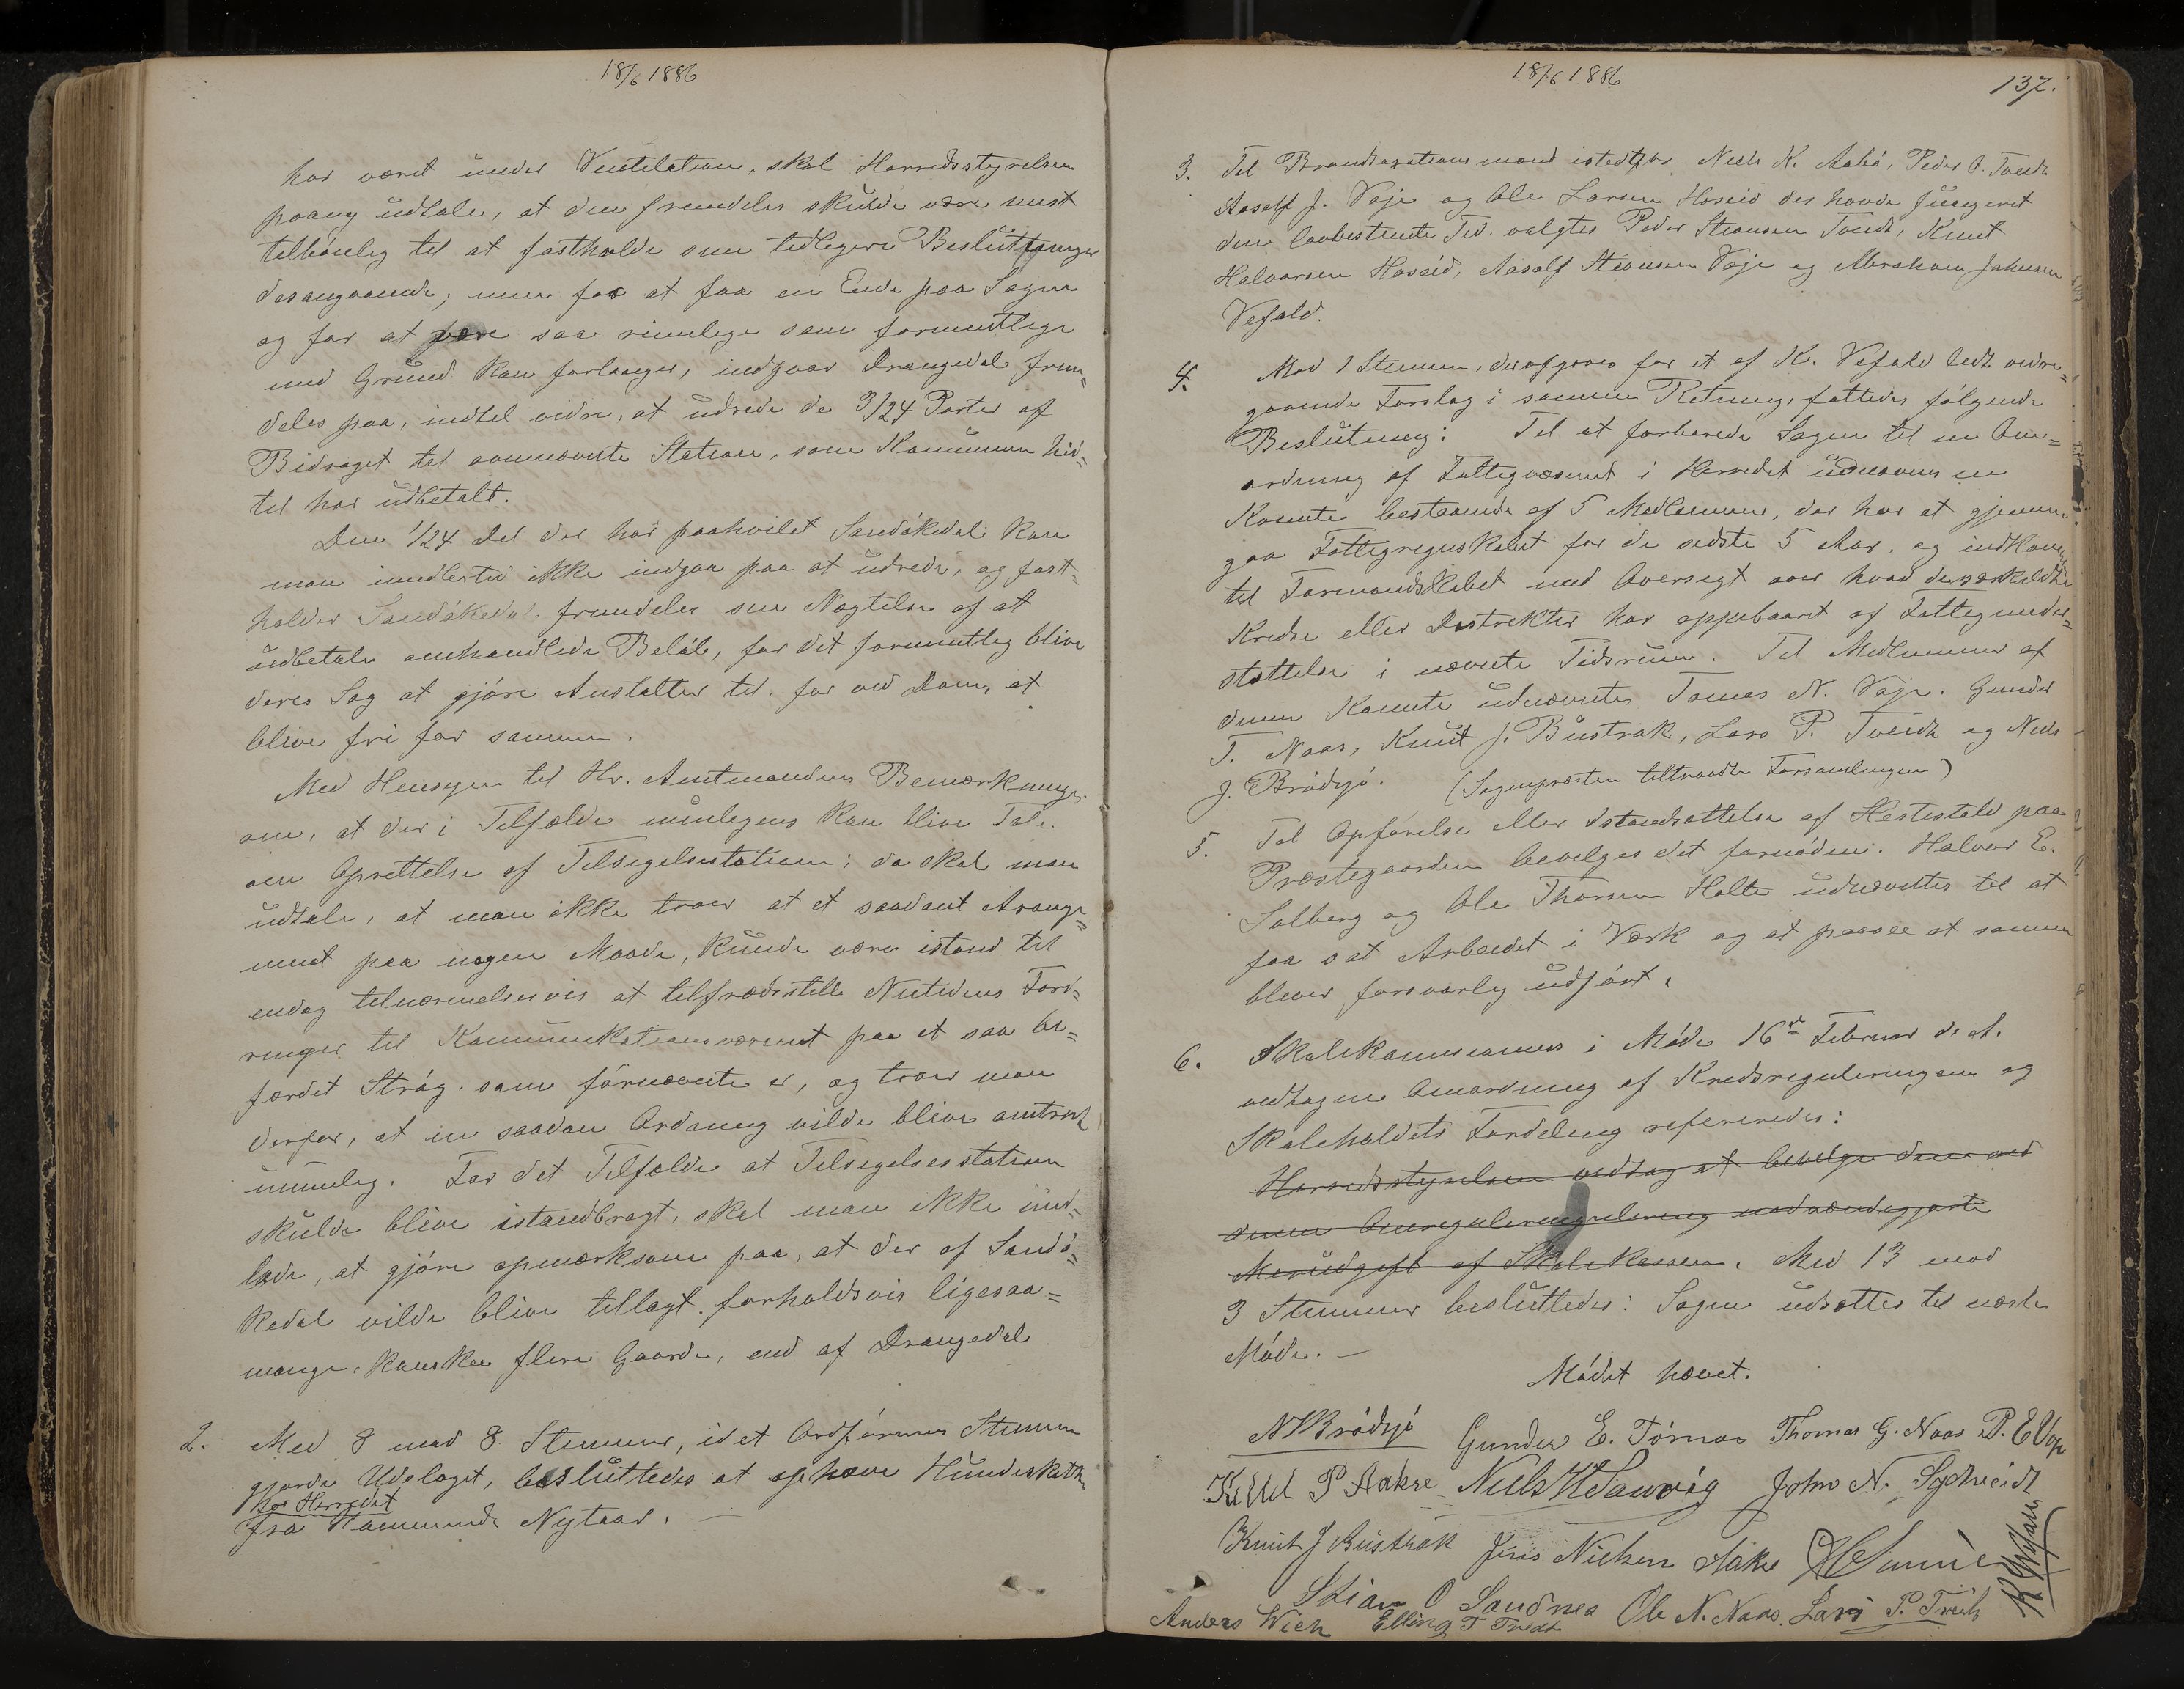 18/6 1886
har været under Ventilation, skal Herredsstyrelsen
paany udtale, at den fremdeles skulde være mest
tilbøielig til at fastholde sine tidligere Beslutninger
desangaaende, men for at faa en Ende paa Sagen
og for at være saa rimelige som formentlige
med Grund kan forlanges, indgaar Drangedal frem=
deles paa, indtil videre, at udrede de 3/24 Parter af
Bidraget til ovennævnte Station, som Kommunen hid=
til har udbetalt.
Den 1/24 Del der har paahvilet Sandøkedal kan
man imidlertid ikke indgaa paa at udrede, og fast=
holder Sandøkedal fremdeles sin Nægtelse af at
udbetale omhandlede Beløb, faar det formentlig blive
deres Sag at gjøre Anstalter til, for ved Dom, at
blive fri for samme.
Med Hensyn til Hr. Amtmandens Bemærkninger
om, at der i Tilfælde muligens kan blive Tale
om Oprettelse af Tilsigelsesstation; da skal man
udtale, at man ikke troer at et saadant Arange=
ment paa nogen Maade, kunde være istand til
endog tilnærmelsesvis at tilfredsstille Nutidens Ford=
ringer til Kommunikationsvæsenet paa et saa be=
færdet Strøg som førnævnte er, og troer man
derfor, at en saadan Ordning vilde blive omtrent
umulig. For det Tilfælde at Tilsigelsesstation
skulde blive istandbragt, skal man ikke und=
lade, at gjøre opmærksom paa, at der af Sandø=
kedal vilde blive tillagt forholdsvis ligesaa=
mange, kanske flere Gaarde, end af Drangedal
2. Med 8 mod 8 Stemmer, idet Ordførerens Stemme
gjorde Udslaget, besluttedes at ophæve Hundeskatten
for Herredet
fra Kommende Nytaar. —
18/6 1886
137.
3. Til Brandtaxationsmænd istedetfor Niels K. Aabø, Peder O. Tveidt
Aasolf J. Voje og Ole Larsen Hoseid der havde fungeret
den lovbestemte Tid valgtes Peder Steansen Tveidt, Knut
Halvorsen Hoseid, Aasolf Steansen Voje og Abraham Johnsen
Vefald.
4. Mod 1 Stemme, der afgaves for et af K. Vefald lidt videre=
gaaende Forslag i samme Retning, fattedes følgende
Beslutning: Til at forberede Sagen til en Om=
ordning af Fattigvæsenet i Herredet udnævnes en
Komite bestaaende af 5 Medlemmer, der har at gjennem
gaa Fattigregnskabet for de sidste 5 Aar, og indkomme
til Formandskabet med Oversigt over hvad de særskildte
Kredse eller Distrikter har oppebaaret af Fattigunder=
støttelse i nævnte Tidsrum. Til Medlemmer af
denne Komite udnævntes Tomas N. Voje, Gunder
T. Naas, Knut J. Bustrak, Lars P. Tveidt og Niels
J. Brødsjø. (Sognepræsten tiltraadte Forsamlingen)
5. Til Opførelse eller Istandsættelse af Hestestald paa
Præstegaarden bevilges det fornødne. Halvor E.
Solberg og Ole Thorsen Holte udnævntes til at
faa sat Arbeidet i Værk og at paasee at samme
bliver forsvarlig udført.
6. Skolekommisionens i Møde 16de Februar d. A.
vedtagne Omordning af Kredsreguleringen og
Skoleholdets Fordeling refereredes:
Herredsstyrelsen vedtog at bevilge den ved
denne Omreguleringulering nødvendiggjorte
Merudgift af Skolekassen. Med 13 mod
3 Stemmer besluttedes: Sagen udsættes til næste
Møde. —
Mødet hævet.
N Brødsjø Gunder E. Tørnes Thomas G. Naas P. E Voje
Kittel P Aakre Niels H Sanvig John N. Lydheidt
Knut J Bustrak Jens Nielsen Aakre
Stian O Sandnes Ole N. Naas. Lars P. Tveidt
Anders Wiek Elling T Tvedt